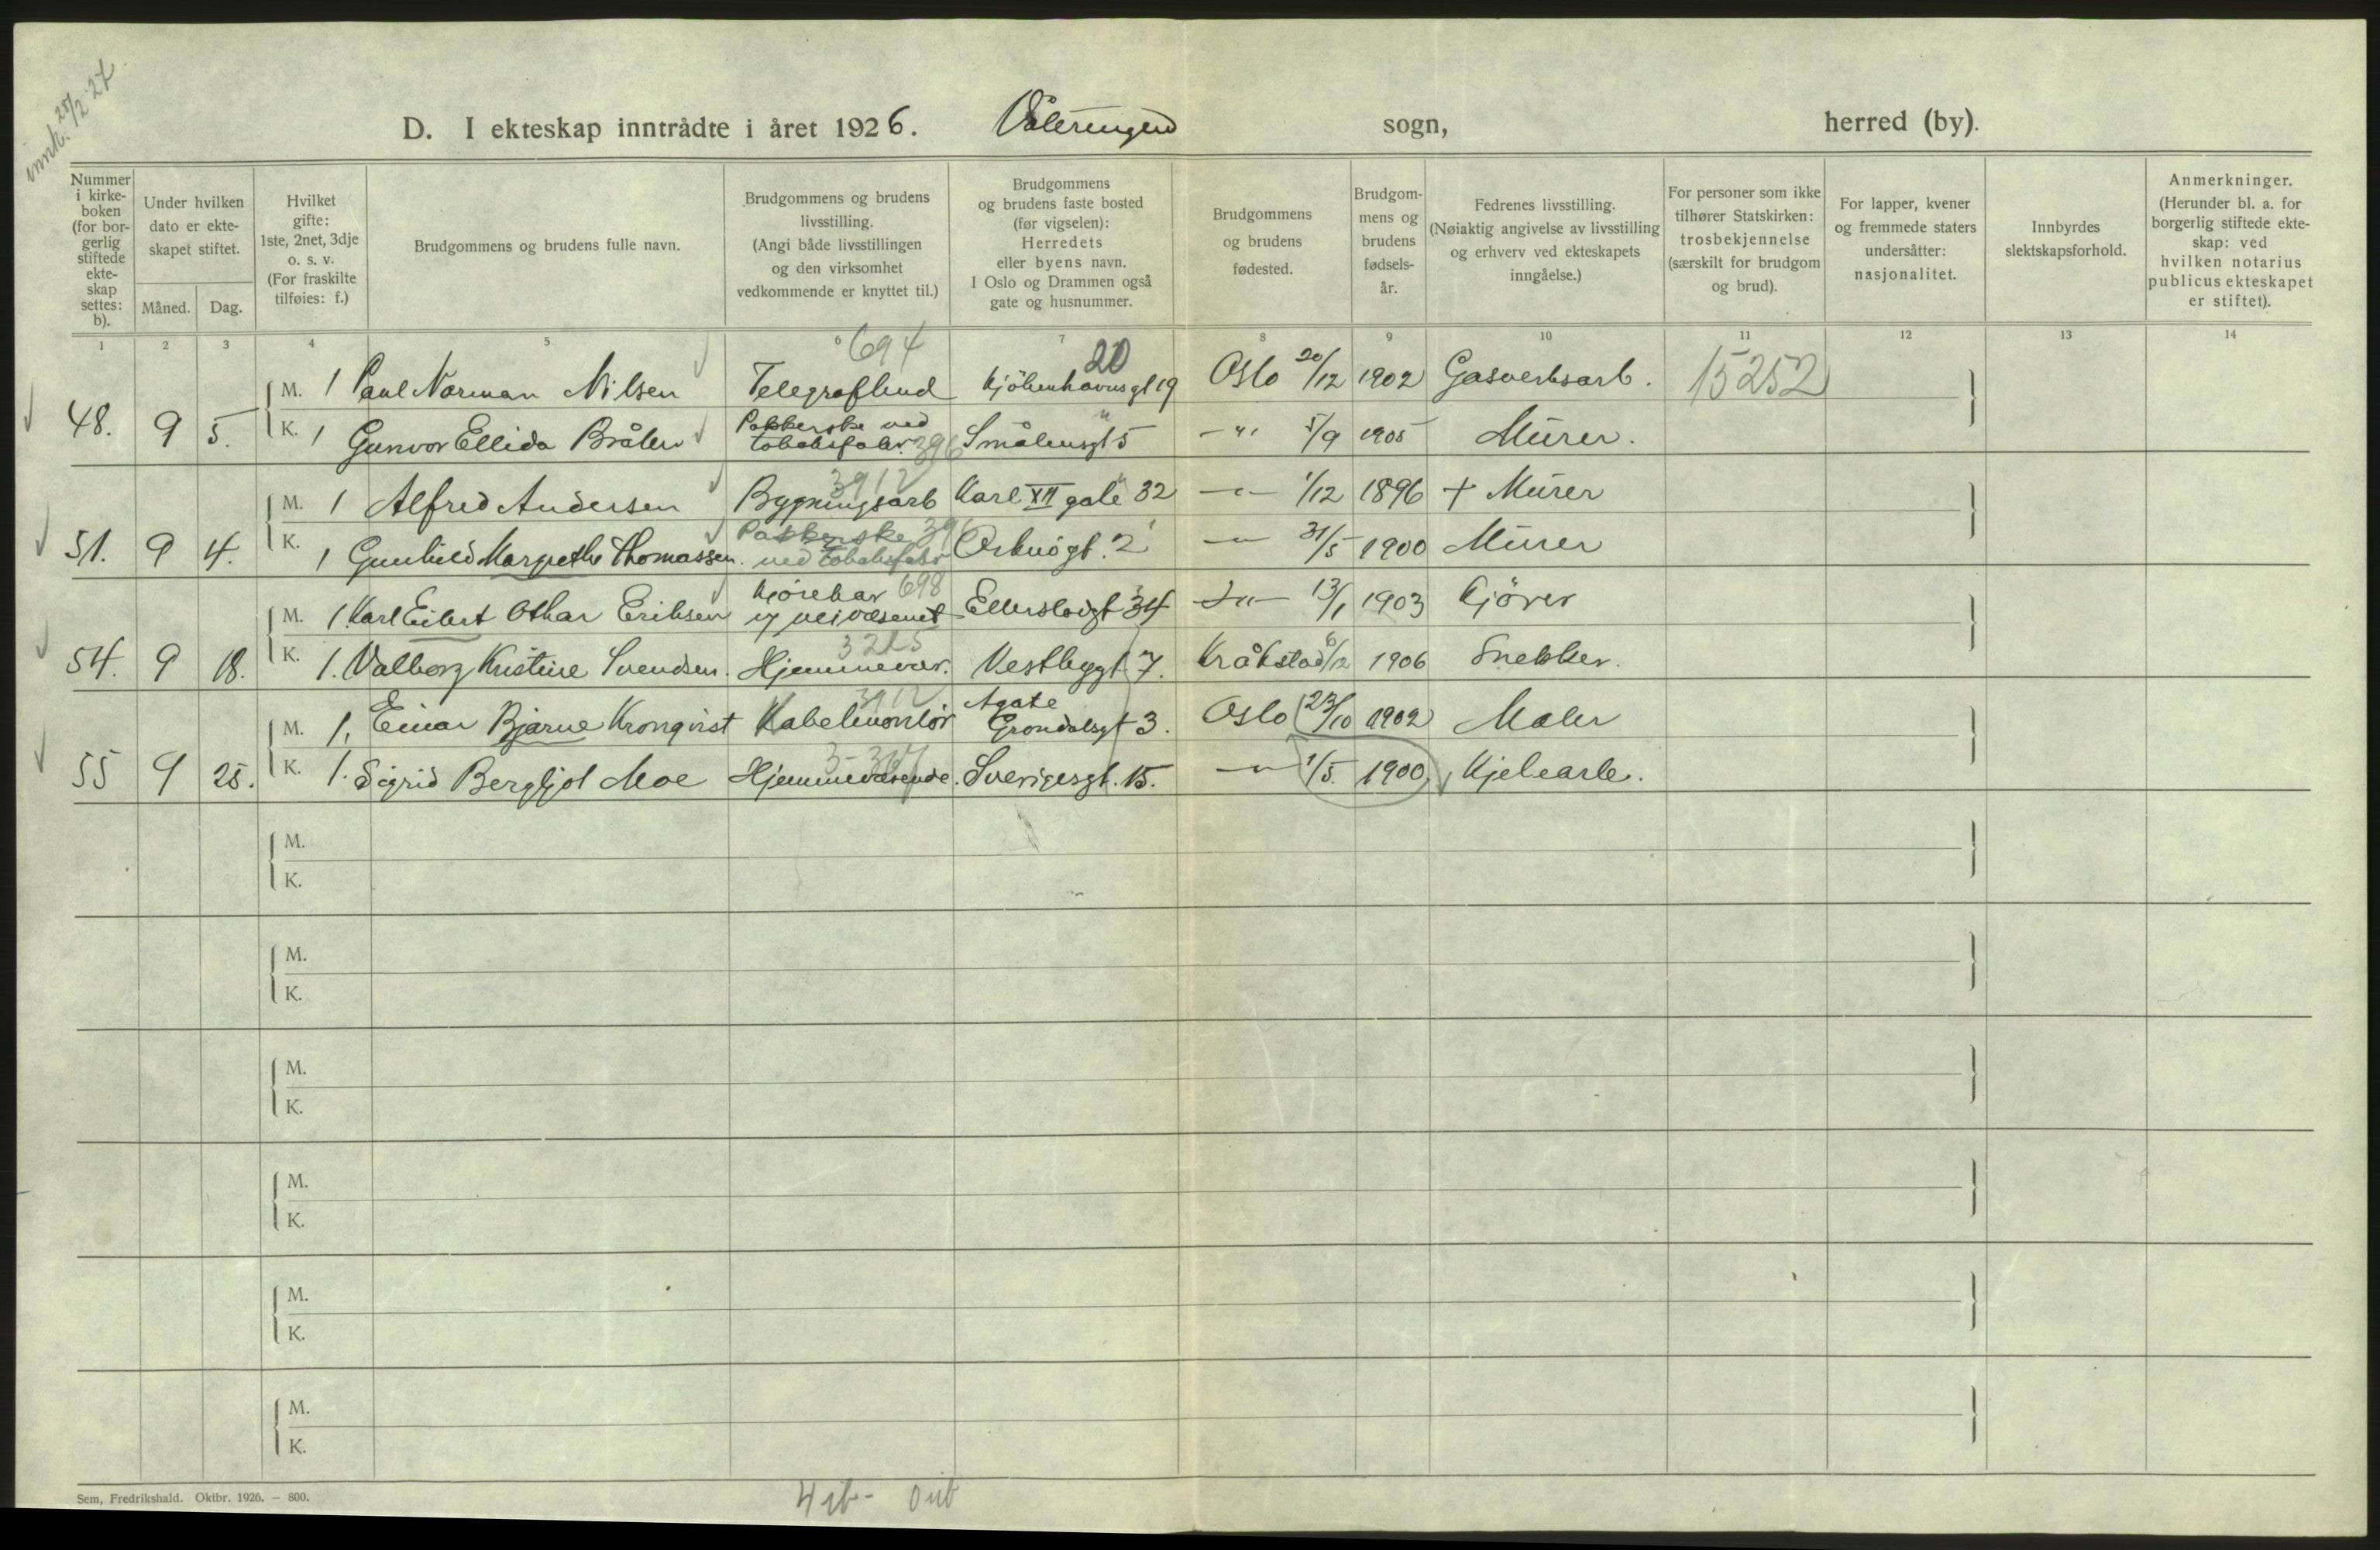 innk. 25/2 27
D. I ekteskap inntrådte i året 1926. Vålerengen sogn, herred (by).
Nummer i kirkeboken (for borgerlig stiftede ekteskap settes: b).
Under hvilken dato er ekteskapet stiftet.
Måned. Dag.
Hvilket gifte: 1ste, 2net, 3dje o. s. v. (For fraskilte tilføies: f.)
Brudgommens og brudens fulle navn.
Brudgommens og brudens livsstilling. (Angi både livsstillingen og den virksomhet vedkommende er knyttet til.)
Brudgommens og brudens faste bosted (før vigselen): Herredets eller byens navn. I Oslo og Drammen også gate og husnummer.
Brudgommens og brudens fødested.
Brudgommens og brudens fødselsår.
Fedrenes livsstilling. (Nøiaktig angivelse av livsstilling og erhverv ved ekteskapets inngåelse.)
For personer som ikke tilhører Statskirken: trosbekjennelse (særskilt for brudgom og brud).
For lapper, kvener og fremmede staters undersåtter: nasjonalitet.
Innbyrdes slektskapsforhold.
Anmerkninger. (Herunder bl. a. for borgerlig stiftede ekteskap: ved hvilken notarius publicus ekteskapet er stiftet).
1 2 3 4 5 6 7 8 9 10 11 12 13 14
694 20
48. 9 5. M. 1 Paul Norman Nilsen Telegrafbud Kjöbenhavnsgt 19 Oslo 20/12 1902 Gasverksarb. 15252
K. 1 Gunvor Ellida Bråten Pakkerske ved tobaksfabr. 396 Smålensgt 5 -"- 5/9 1905 Murer.
3912
51. 9 4. M. 1 Alfred Andersen Bygningsarb Karl XII gate 32 -"- 1/12 1896 + Murer
K. 1 Gunhild Margrethe Thomassen Pakkerske ved tobaksfabr 396 Orknögt. 2 -"- 31/5 1900 Murer
698
54. 9 18. M. 1 Karl Eilert Othar Eriksen Kjörekar veivæsenet Ellerslevgt 34 -"- 13/1 1903 Kjörer
3215
K. 1. Valborg Kristine Svendsen. Hjemmevær. Vestbygt 7. Kråkstad 6/12 1906 Snekker.
3912
55 9 25. M. 1. Einar Bjarne Kronqvist Kabelmontör Agate Grøndalsgt 3. Oslo 23/10 1902 Maler
K. 1. Sigrid Bergljot Moe Hjemmeværende. Sverigesgt. 15. -"- 1/5 1900 Kjelearb.
M.
K.
M.
K.
M.
K.
M.
K.
M.
K.
M.
K.
Sem, Fredrikshald. Oktbr. 1926. — 800.
4 ib- 0 ub